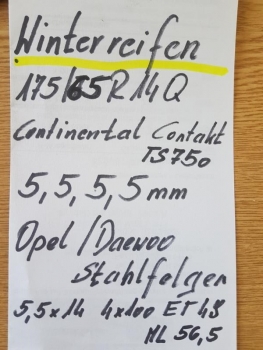 Winterreifen
175/65R14Q
Continental Contakt
TS750
5,5,5,5mm
Opel/Daewoo
Stahlfelgen
5,5x14 4x100 ET 49
ML 56,5